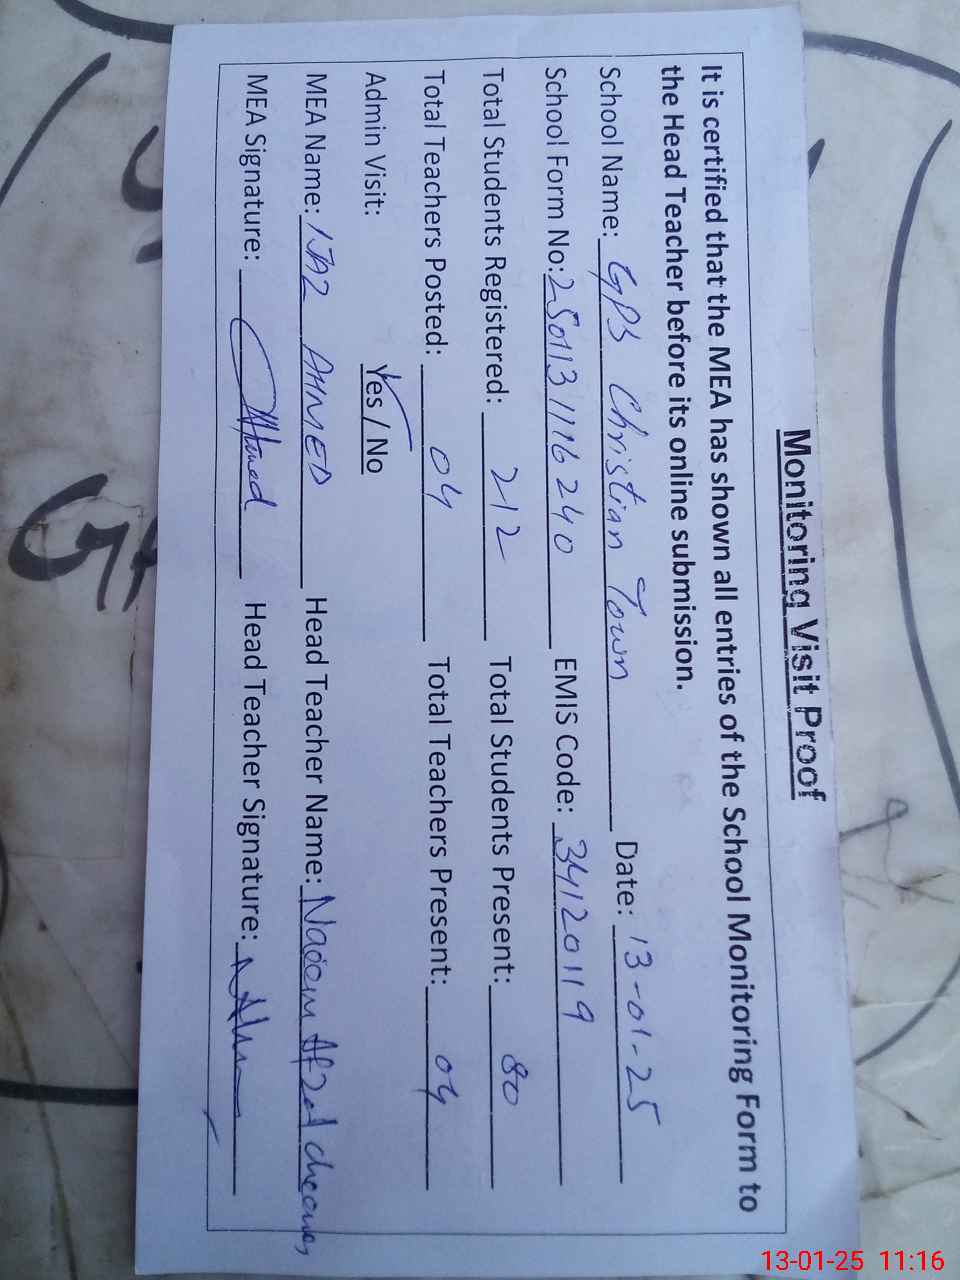 Monitoring Visit Proof
It is certified that the MEA has shown all entries of the School Monitoring Form to
the Head Teacher before its online submission.
School Name: GPS Christian Town Date: 13-01-25
School Form No: 250113 1116 240 EMIS Code: 34120119
Total Students Registered: 212 Total Students Present: 80
Total Teachers Posted: 04 Total Teachers Present: 04
Admin Visit: Yes / No
MEA Name: IJAZ AHMED Head Teacher Name: Naeem Afzal
MEA Signature: Ahmed Head Teacher Signature:
13-01-25 11:16